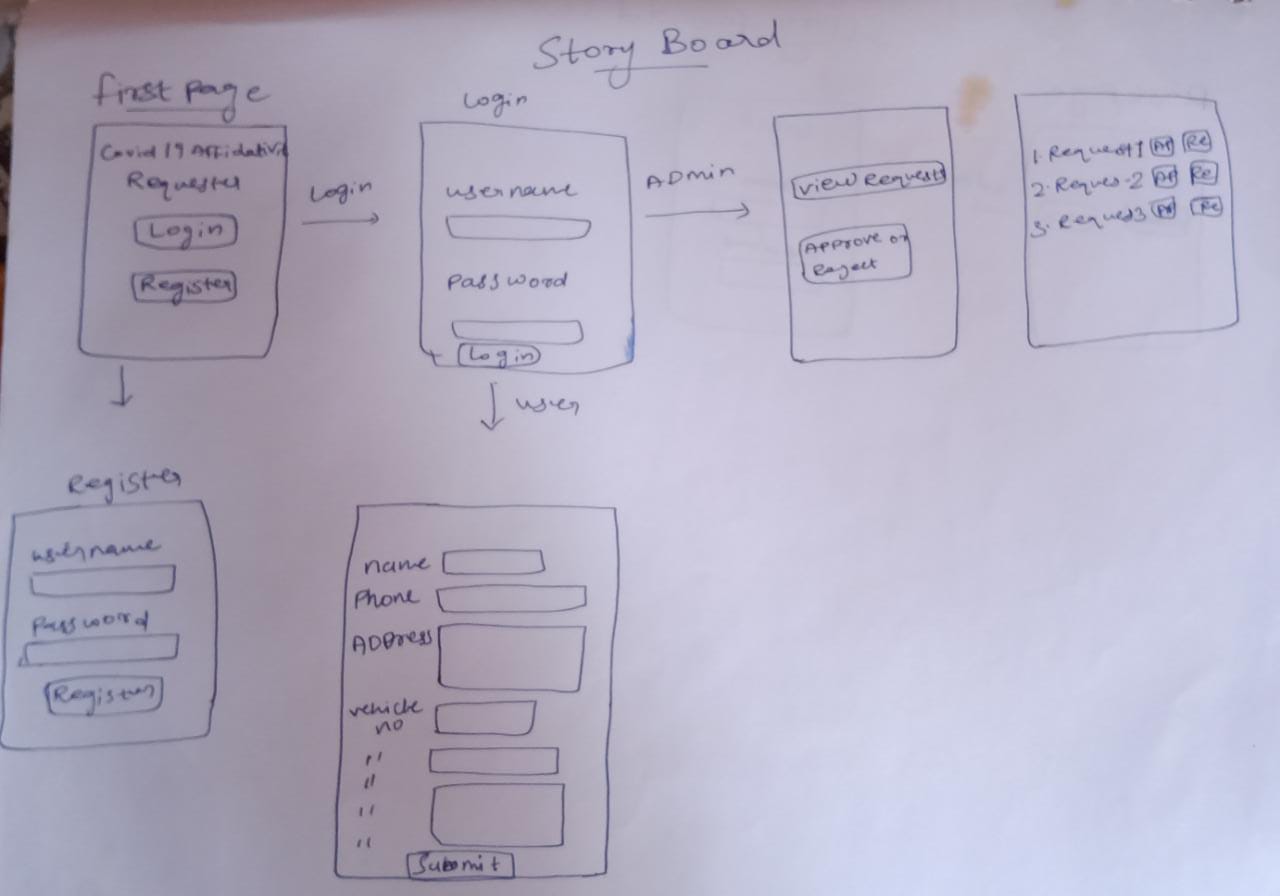 Story Board
first page
Covid 19 Affidativit
Requester
Login
Register
Login
Login
username
password
Login
ADmin
view Requests
Approve or
Reject
1. Request1 AP Re
2. Reques-2 AP Re
3. Request3 AP Re
user
Register
username
password
Register
name
Phone
ADDress
vehicle
no
"
"
"
"
Submit